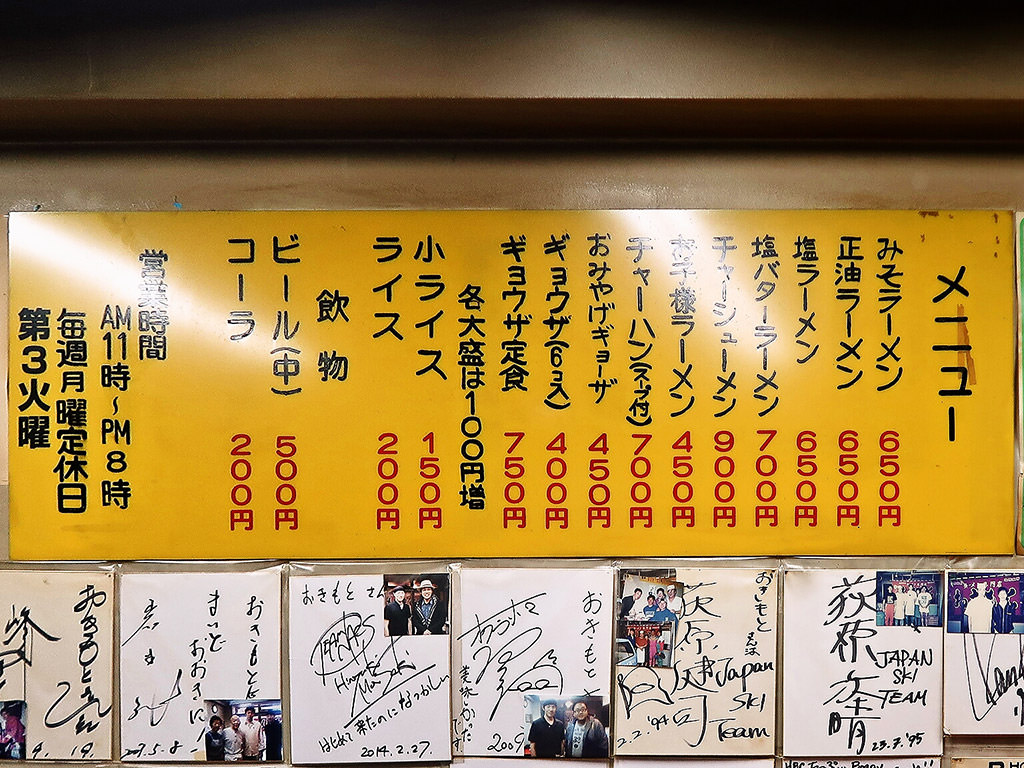 メニュー
みそラーメン 650円
正油ラーメン 650円
塩ラーメン 650円
塩バターラーメン 700円
チャーシューメン 900円
お子様ラーメン 450円
チャーハン(スープ付) 700円
おみやげギョーザ 450円
ギョウザ(6コ入) 400円
ギョウザ定食 750円
各大盛は100円増
小ライス 150円
ライス 200円
飲物
ビール(中) 500円
コーラ 200円
営業時間
AM11時～PM8時
毎週月曜定休日
第3火曜
おきもとさん
はじめて来たのになつかしい
2014.2.27.
おきもと
2009
おきもとさんは
荻原
Japan
SKI
Team
荻原
JAPAN
SKI
TEAM
23.7.'95